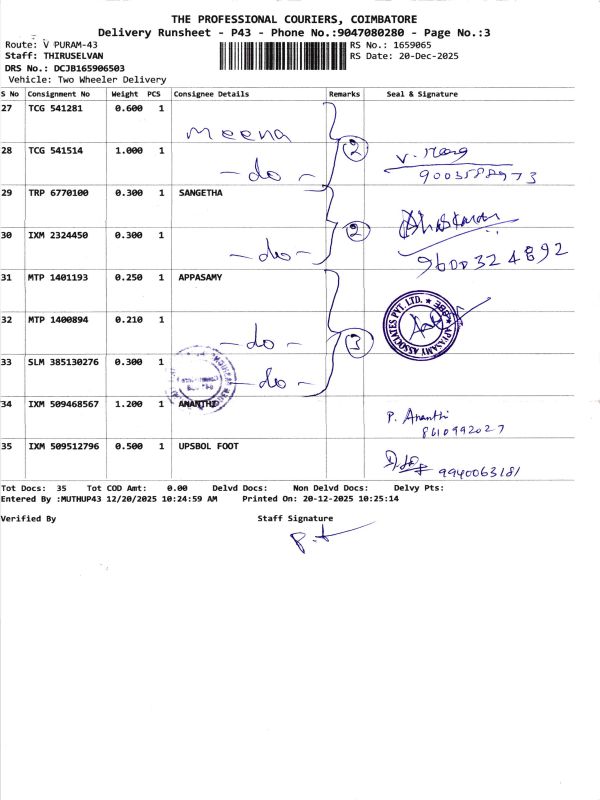 THE PROFESSIONAL COURIERS, COIMBATORE
Delivery Runsheet - P43 - Phone No.:9047080280 - Page No.:3
Route: V PURAM-43 RS No.: 1659065
Staff: THIRUSELVAN RS Date: 20-Dec-2025
DRS No.: DCJB165906503
Vehicle: Two Wheeler Delivery
S No Consignment No Weight PCS Consignee Details Remarks Seal & Signature
27 TCG 541281 0.600 1
Meena
28 TCG 541514 1.000 1 2
- do - 9003588973
29 TRP 6770100 0.300 1 SANGETHA
30 IXM 2324450 0.300 1 2
- do - 9600324892
31 MTP 1401193 0.250 1 APPASAMY
32 MTP 1400894 0.210 1 APPASAMY ASSOCIATES PVT. LTD.
- do - 3
33 SLM 385130276 0.300 1
- do -
34 IXM 509468567 1.200 1 ANANTHI
P. Ananthi
8610992027
35 IXM 509512796 0.500 1 UPSBOL FOOT
9940063181
Tot Docs: 35 Tot COD Amt: 0.00 Delvd Docs: Non Delvd Docs: Delvy Pts:
Entered By :MUTHUP43 12/20/2025 10:24:59 AM Printed On: 20-12-2025 10:25:14
Verified By Staff Signature